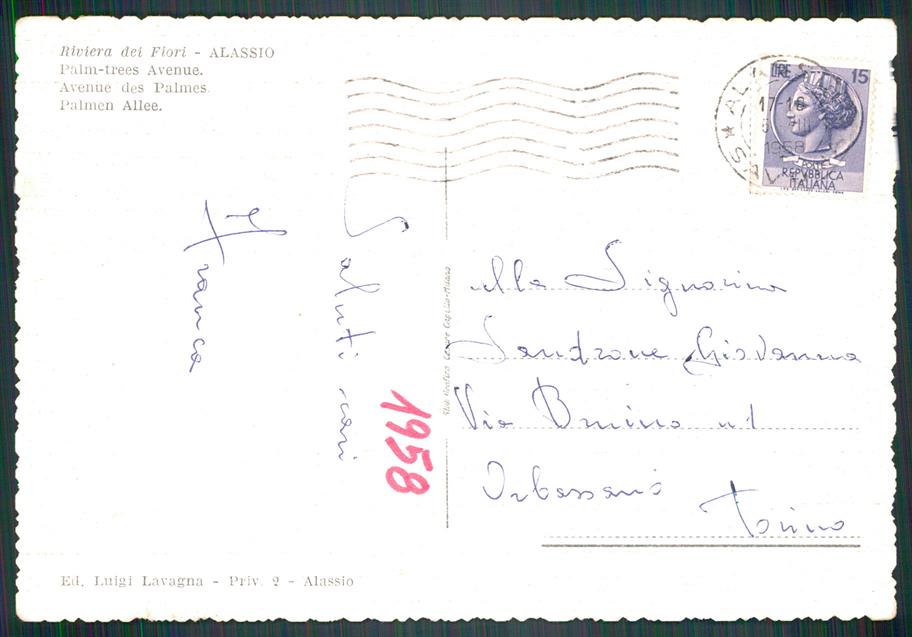 Riviera dei Fiori - ALASSIO
Palm-trees Avenue.
Avenue des Palmes.
Palmen Allee.
LIRE 15
17-18
1958
REPVBBLICA
ITALIANA
Saluti cari
Franca
1958
Alla Signorina
Sandrone Giovanna
Via Bruino n 1
Orbassano
Torino
Ed. Luigi Lavagna - Priv. 2 - Alassio